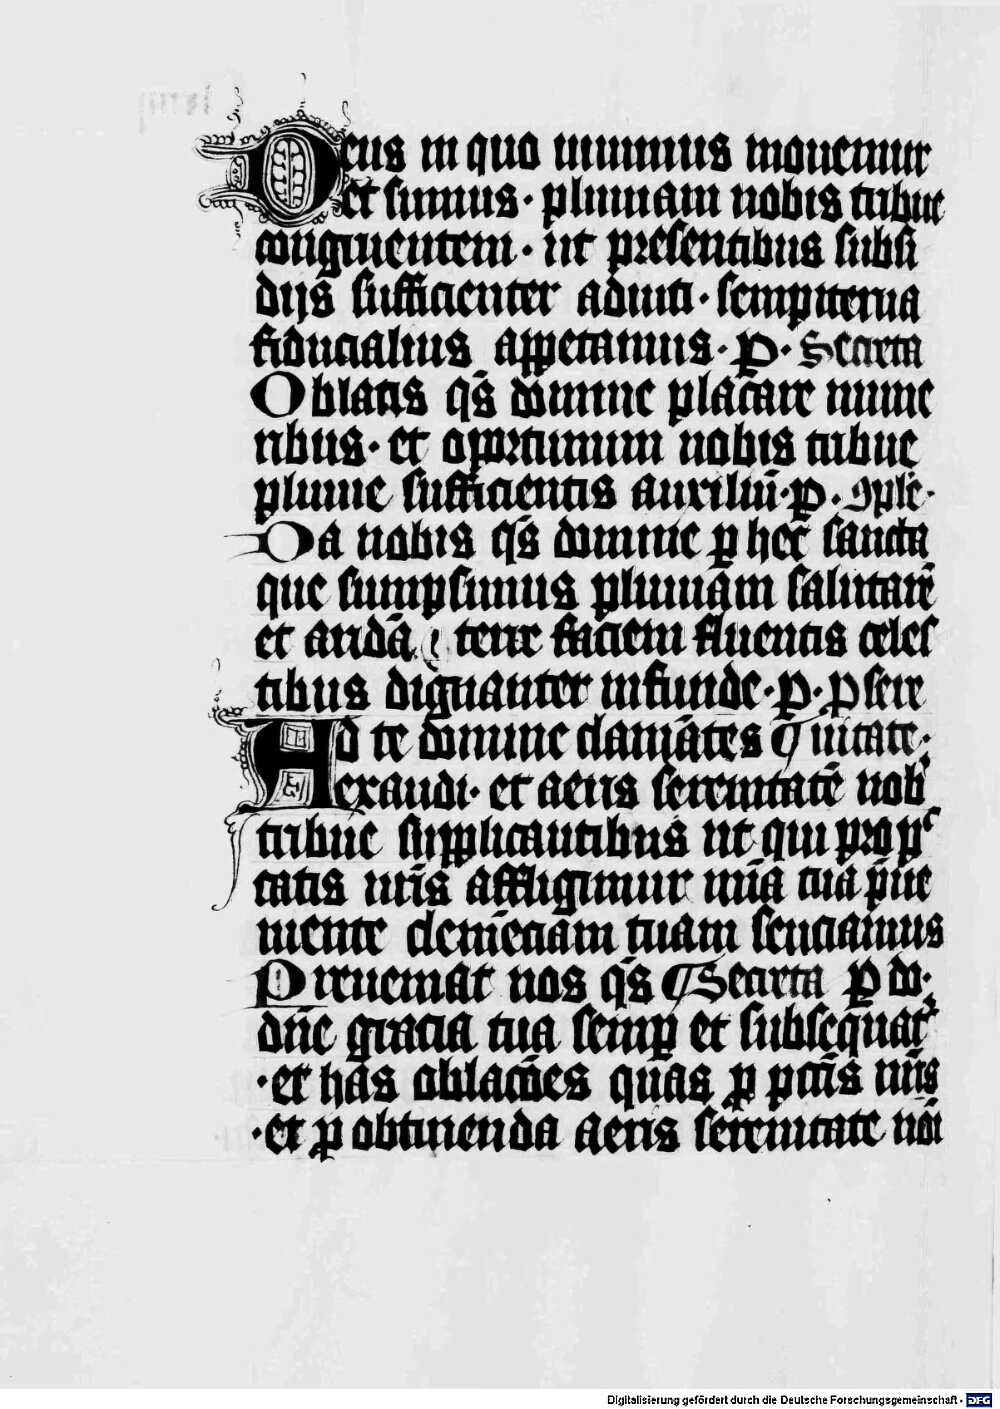 Deus in quo uiuimus mouemur
et sumus · pluuiam nobis tribue
congruentem · ut presentibus subsi
dijs sufficienter adiuti · sempiterna
fiducialius appetamus · P · Secreta
Oblatis qs̄ domine placare mune
ribus · et oportunum nobis tribue
pluuie sufficientis auxiliū · P · 9ple ·
Da nobis qs̄ domine ꝑ hec sancta
que sumpsimus pluuiam salutarē
et aridā terre faciem fluentis celes
tibus dignanter infunde · P · P sere
Ad te domine clamātes ¶ nitate ·
exaudi · et aeris serenitatē nob
tribue supplicantibus ut qui pro p
tatis nr̄is affligimur mīa tua p̄ue
niente clemēciam tuam senciamus
Preueniat nos qs̄ ¶ Secreta P do ·
dn̄e gracia tua semꝑ et subsequat
· et has oblacōes quas ꝑ pctīs nr̄is
· et ꝑ obtinenda aeris serenitate noī
Digitalisierung gefördert durch die Deutsche Forschungsgemeinschaft - DFG